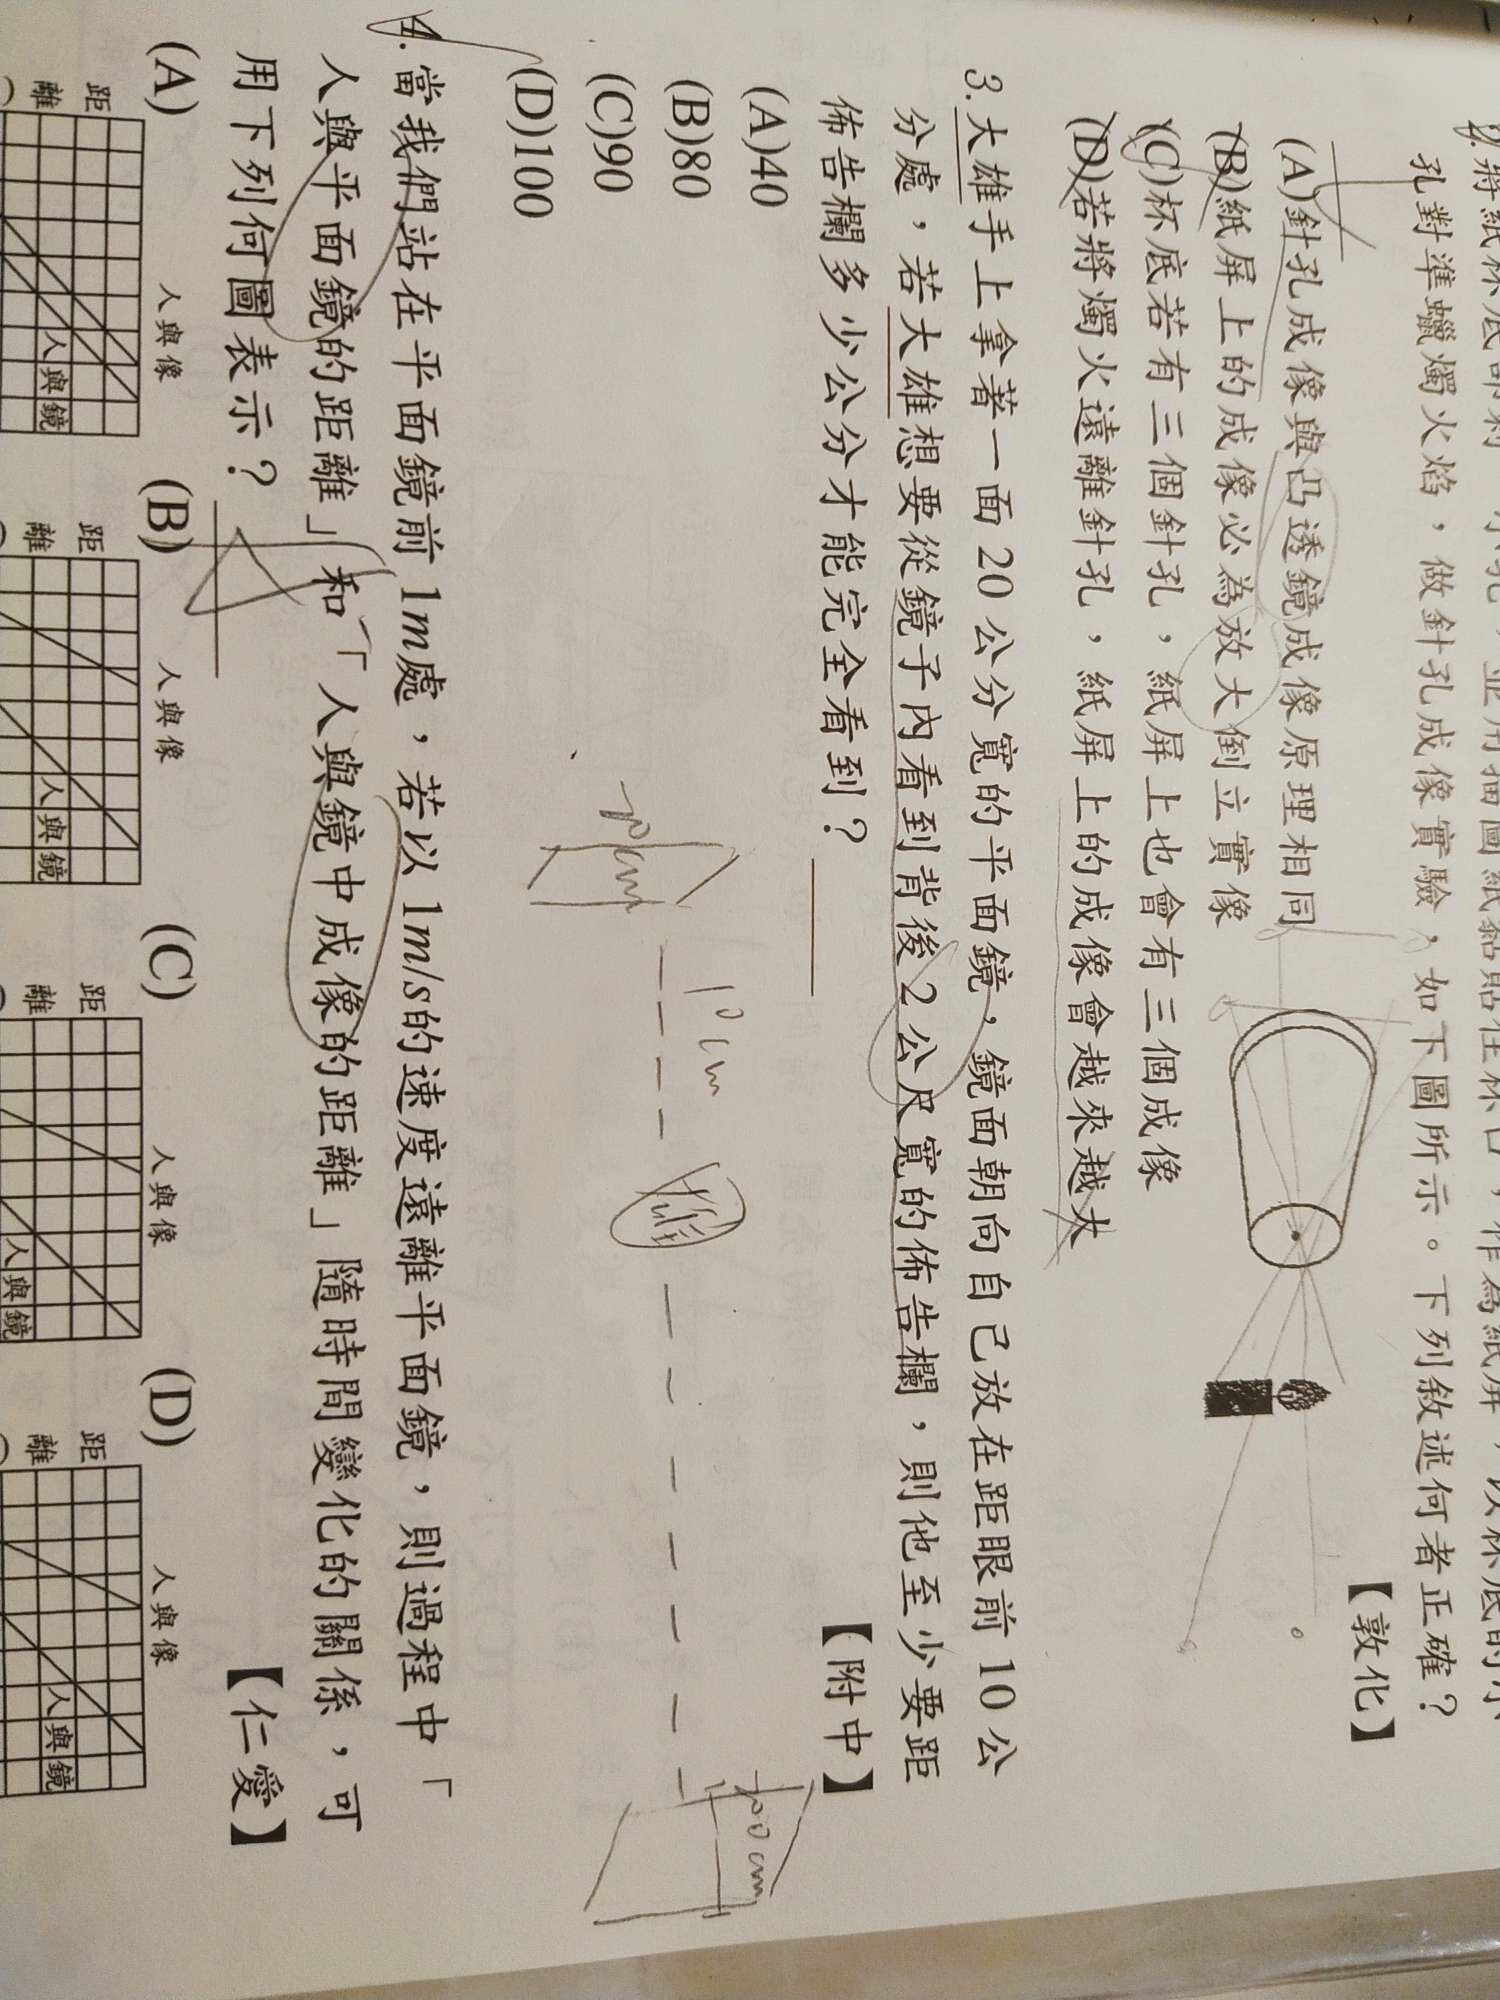 孔對準蠟燭火焰，做針孔成像實驗，如下圖所示。下列敘述何者正確？
【敦化】
(A)針孔成像與凸透鏡成像原理相同
(B)紙屏上的成像必為放大倒立實像
(C)杯底若有三個針孔，紙屏上也會有三個成像
(D)若將燭火遠離針孔，紙屏上的成像會越來越大
3.大雄手上拿著一面20公分寬的平面鏡，鏡面朝向自己放在距眼前10公
分處，若大雄想要從鏡子內看到背後2公尺寬的佈告欄，則他至少要距
佈告欄多少公分才能完全看到？
【附中】
(A)40
(B)80
(C)90
(D)100
20cm
10cm
200cm
4.當我們站在平面鏡前1m處，若以1m/s的速度遠離平面鏡，則過程中「
人與平面鏡的距離」和「人與鏡中成像的距離」隨時間變化的關係，可
用下列何圖表示？
【仁愛】
(A)
距離
人與像
人與鏡
(B)
距離
人與像
人與鏡
(C)
距離
人與像
人與鏡
(D)
距離
人與像
人與鏡